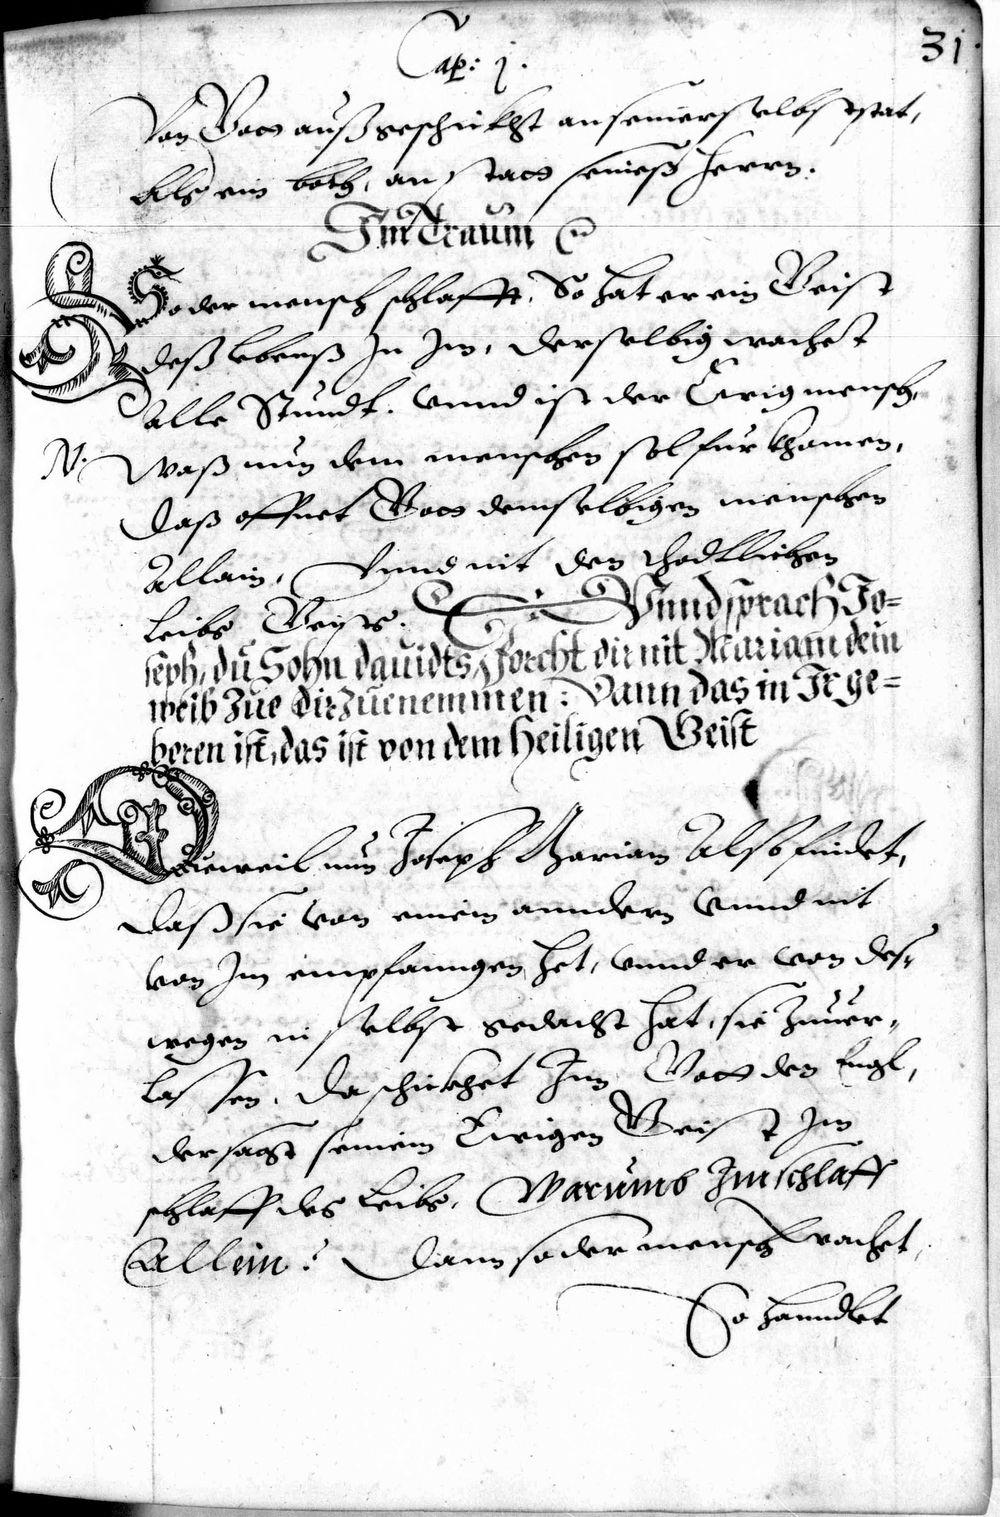 Cap: j.
31
Von Gott außgeschickht an seiner selbst stat,
Als ein bott, an stadt seineß Herrn.
Im Traum
So der mensch schlafft, So hat er ein Geist
deß lebenß In Im, derselbig wachet
Alle Stundt. Vnnd ist der Ewig mensch,
N. Waß nun dem menschen sol fürkhomen,
Daß offnet Gott demselbigen menschen
Allain, Vnnd nit den thodtlichen
leibs Geist. Vnnd sprach Jo-
seph, du Sohn dauidts, forcht dir nit Mariam dein
weib Zue dir Zuenemmen: Dann das in Ir ge-
boren ist, das ist von dem Heiligen Geist
Dieweil nun Joseph Mariam Also findet,
Daß sie von einem anndern Vnnd nit
von Im empfanngen het, Vnnd er von des-
wegen in selbst gedacht hat, sie Zuuer-
lassen. Da schickhet Im Gott den Engl,
der sagt seinem Ewigen Geist Im
schlaff des Leibs, Warumb Im schlaff
Allein? Dann so der mensch wachet,
So hanndlet